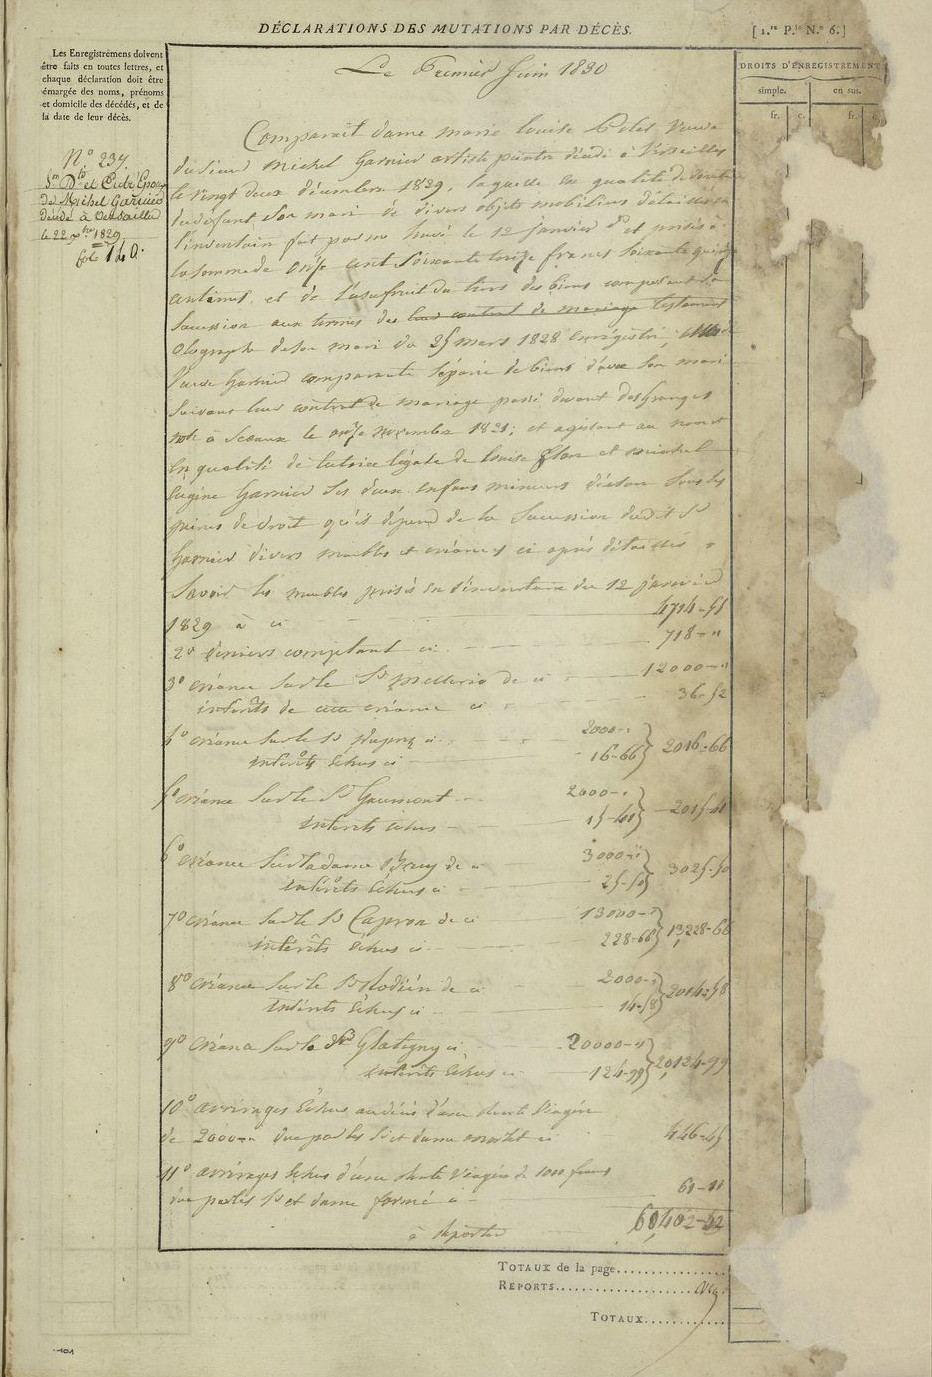 DÉCLARATIONS DES MUTATIONS PAR DÉCÈS.
[1.re P.ie N.o 6.]
Les Enregistremens doivent
être faits en toutes lettres, et
chaque déclaration doit être
émargée des noms, prénoms
et domicile des décédés, et de
la date de leur décès.
DROITS D'ENREGISTREMENT
simple. en sus.
fr. c. fr. c.
Le Premier Juin 1830
N.o 237.
de Michel Garnier
décédé à Versailles
le 22 Xbre 1829
140.
Comparait dame marie louise veuve
du sieur Michel Garnier artiste peintre décédé à Versailles
le vingt deux décembre 1829, laquelle en qualité de
son mari de divers objets mobiliers détaillés en
l'inventaire fait par me le 12 janvier d.er et prisés à
la somme de onze cent soixante treize francs soixante quinze
centimes, et de l'usufruit du tiers des biens composant la
succession aux termes des leur contrat de mariage testament
olographe de son mari du 25 mars 1828 enregistré,
veuve Garnier comparante séparée de biens d'avec son mari
suivant leur contrat de mariage passé devant desgranges
note à Sceaux le onze novembre 1821; et agissant au nom et
en qualité de tutrice légale de louise et michel
Eugène Garnier ses deux enfans mineurs déclare sous les
peines de droit qu'il dépend de la succession dudit Sr
Garnier divers meubles et créances ci après détaillés
Savoir les meubles prisés en l'inventaire du 12 janvier
1829 à ci 4714-55
2o deniers comptant ci 718-"
3o créance sur le Sr mellerio de ci 12000-"
intérêts de cette créance ci 36-52
4o créance sur le Sr ci 2000-"
intérêts échus ci 16-66 } 2016-66
5o créance sur le Sr Gaumont 2000-"
intérêts échus 15-41 } 2015-41
6o créance sur la dame de ci 3000-"
intérêts échus ci 25-50 } 3025-50
7o créance sur le Sr Capron de ci 13000-"
intérêts échus ci 228-66 } 13,228-66
8o créance sur le Sr de ci 2000-"
intérêts échus ci 14-58 } 2014-58
9o créance sur le Glatigny ci 20000-"
intérêts échus ci 124-99 } 20,124-99
10o arrérages échus au décès d'une rente viagère
de 2000-" due par les Sr et dame ci 446-45
11o arrérages échus d'une rente viagère de 1000 francs
due par les Sr et dame formé ci 61-11
à reporter 60,402-42
TOTAUX de la page
REPORTS
TOTAUX